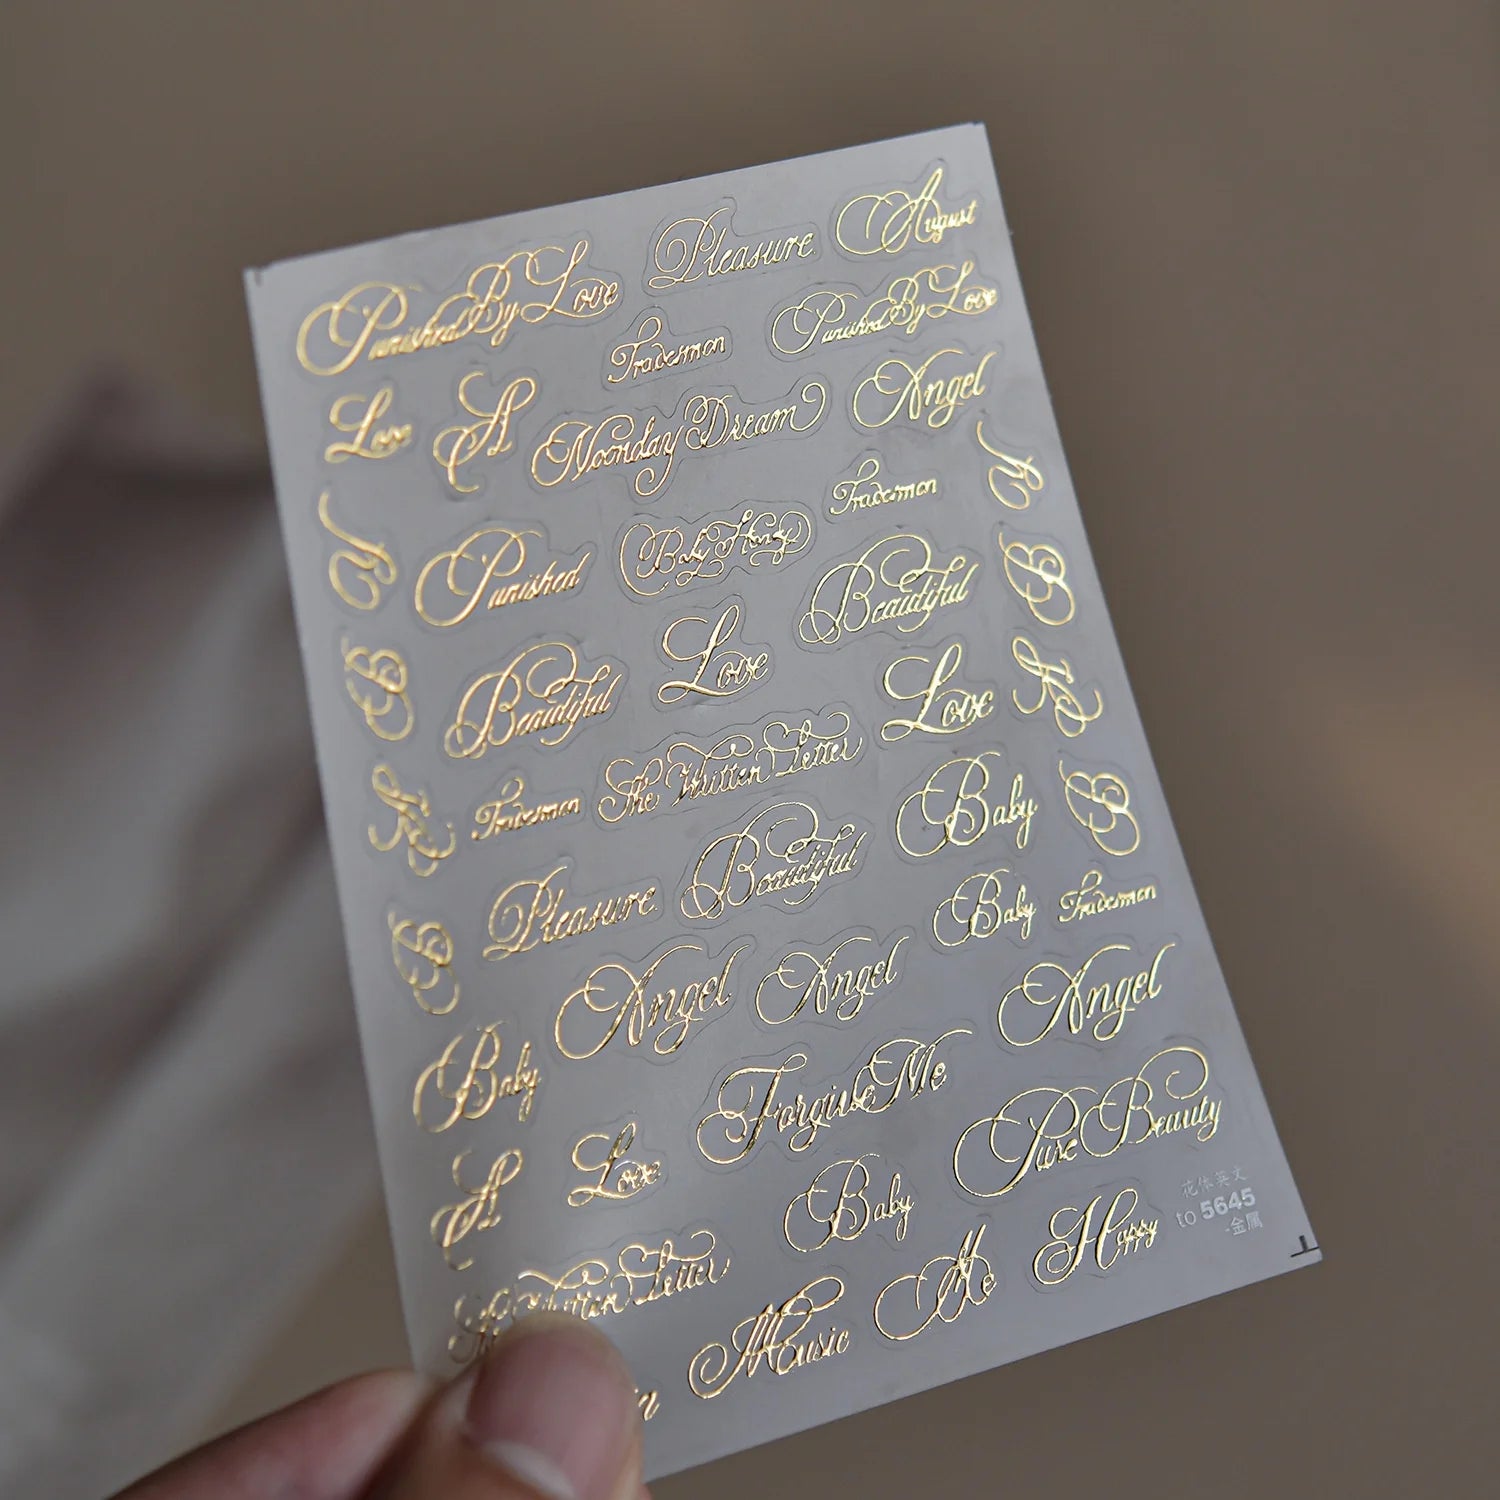 Pleasure
August
Punished By Love
Tradesmen
Punished By Love
Love
A
Noonday Dream
Angel
Tradesmen
Y
Y
Punished
Baby Honey
Beautiful
B
B
Beautiful
Love
Love
A
A
Tradesmen
The Written Letter
Baby
B
B
Pleasure
Beautiful
Baby
Tradesmen
Angel
Angel
Angel
Baby
Forgive Me
Pure Beauty
A
Love
Baby
Written Letter
Music
Me
Happy
花体英文
to 5645
-金属